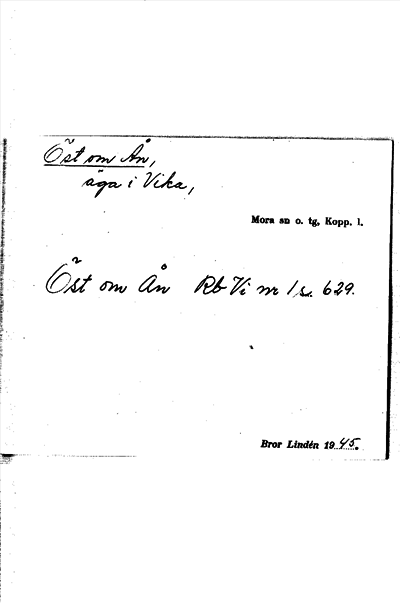 Öst om Ån,
äga i Vika,
Mora sn o. tg, Kopp. l.
Öst om Ån Rb Vi nr 1 s. 629.
Bror Lindén 1945.